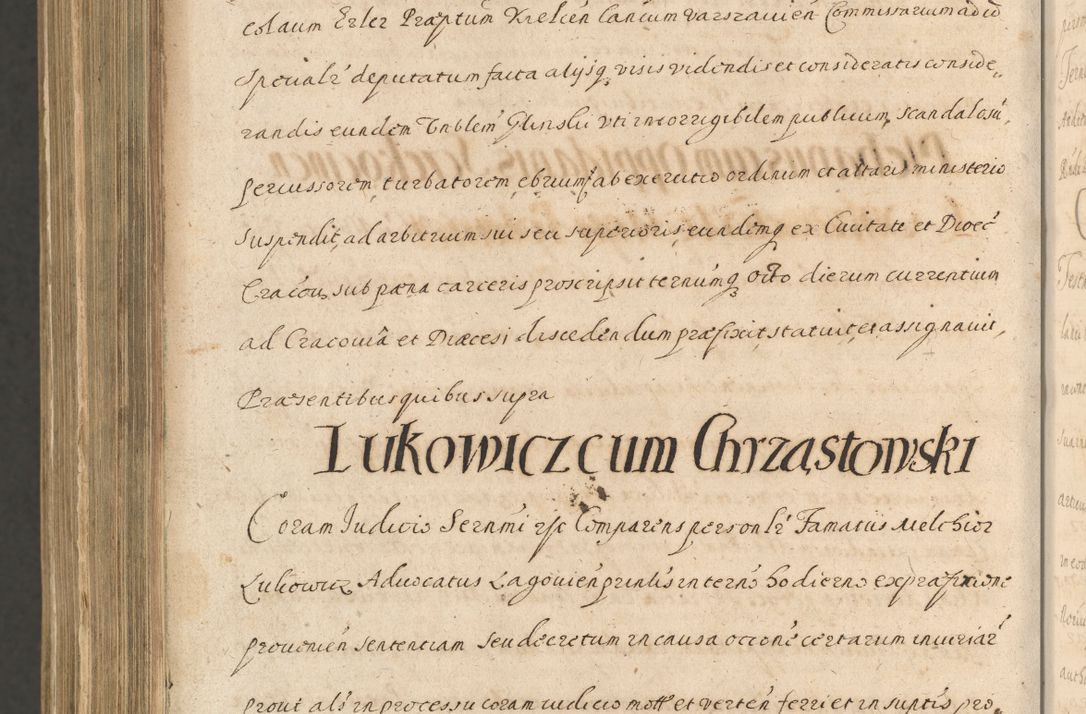 colaum Erler Præptum Krelicen̄ Cancum varszavien̄ Commissarium ad id
specialr̄ deputatum facta alijsq̨ visis videndis et consideratis conside„
randis eundem Gnblem̄ Glinslii vti incorrigibilem publicum, scandalosū,
percussorem turbatorem ebrium ab exercitio ordinum et altaris ministerio
suspendit, ad arbitrium sui seu superioris eundemq̨ ex Civitate et Diœc̄
Cracov̄, sub pæna carceris proscripsit ternumq̨ octo dierum currentium
ad Cracoviā et Diæcesi discedendum præfixit, statuit, et assignavit,
Præsentibus quibus supra
Lukowicz cum Chrząstowski
Coram Judicio Sernmi rsc Comparens personlr̄ Famatus Melchior
Lukowicz Advocatus Lagovien̄ prinlis in termo hodierno ex præfixione
provenien̄ sententiam seu decretum in causa occōne certarum iniuriar̄
prout als̄ in processu coram iudicio mott̄ et verten̄ ferri et in suptis pro„